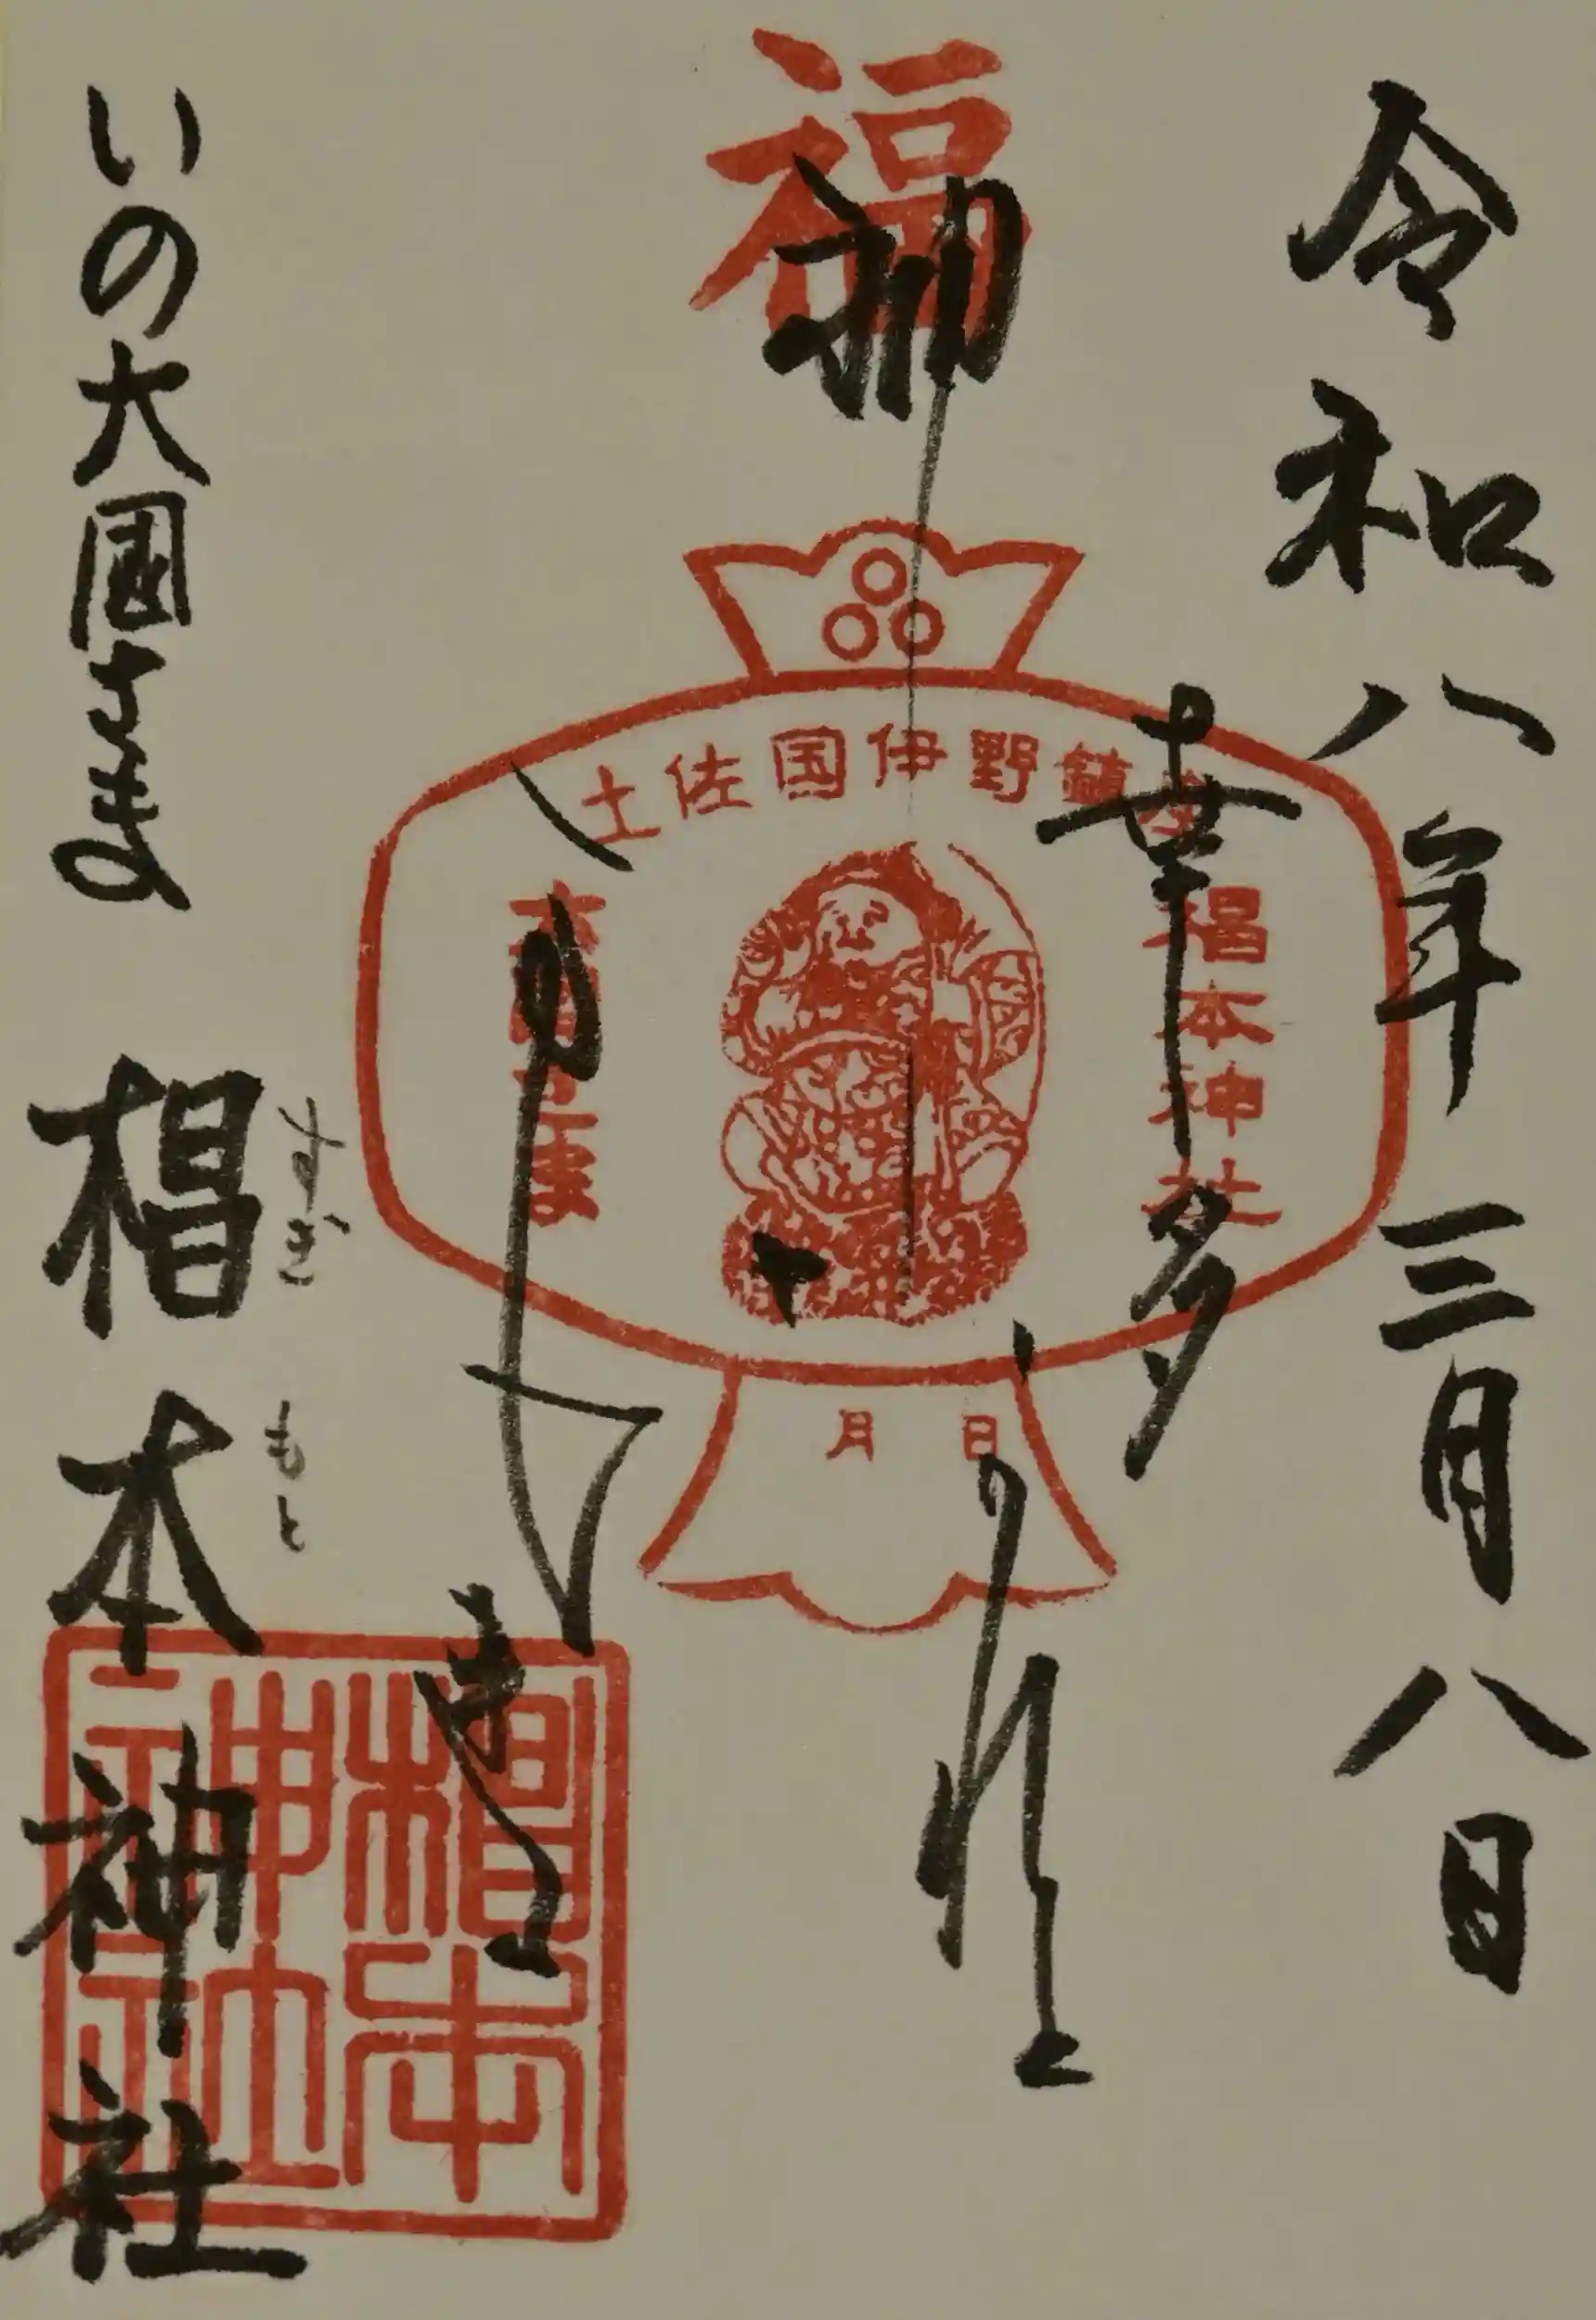 令和八年三月八日
福
幸多
土佐国伊野鎮座
椙本神社
大国さま
月 日
いの大国さま
椙本神社
すぎ もと
椙本
神社